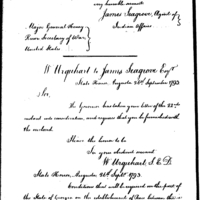 very humble servant
James Seagrove, Agent of
Indian Affairs
Major General Henry
Knox Secretary of War
United States
W Urquhart to James Seagrove Esqr
State House, Augusta 26th September 1793
Sir,
The Governor has taken your letter of the 22nd
instant into consideration, and requests that you be furnished with
the enclosed.
I have the honor to be
Sir your obedient servant
W. Urquhart S. E. D.
State House, Augusta 26th Sept 1793.
Conditions that will be required on the part of
the State of Georgia on the establishment of Peace between the